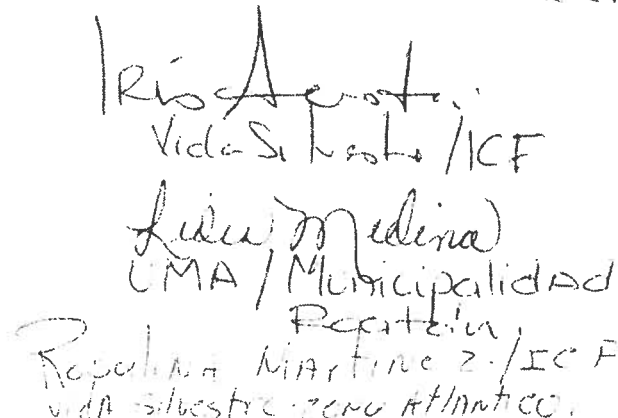 Iris Acosta
Vida Silvestre /ICF
Lidia Medina
UMA / Municipalidad
Martinez /ICF
Vida silvestre Atlantico